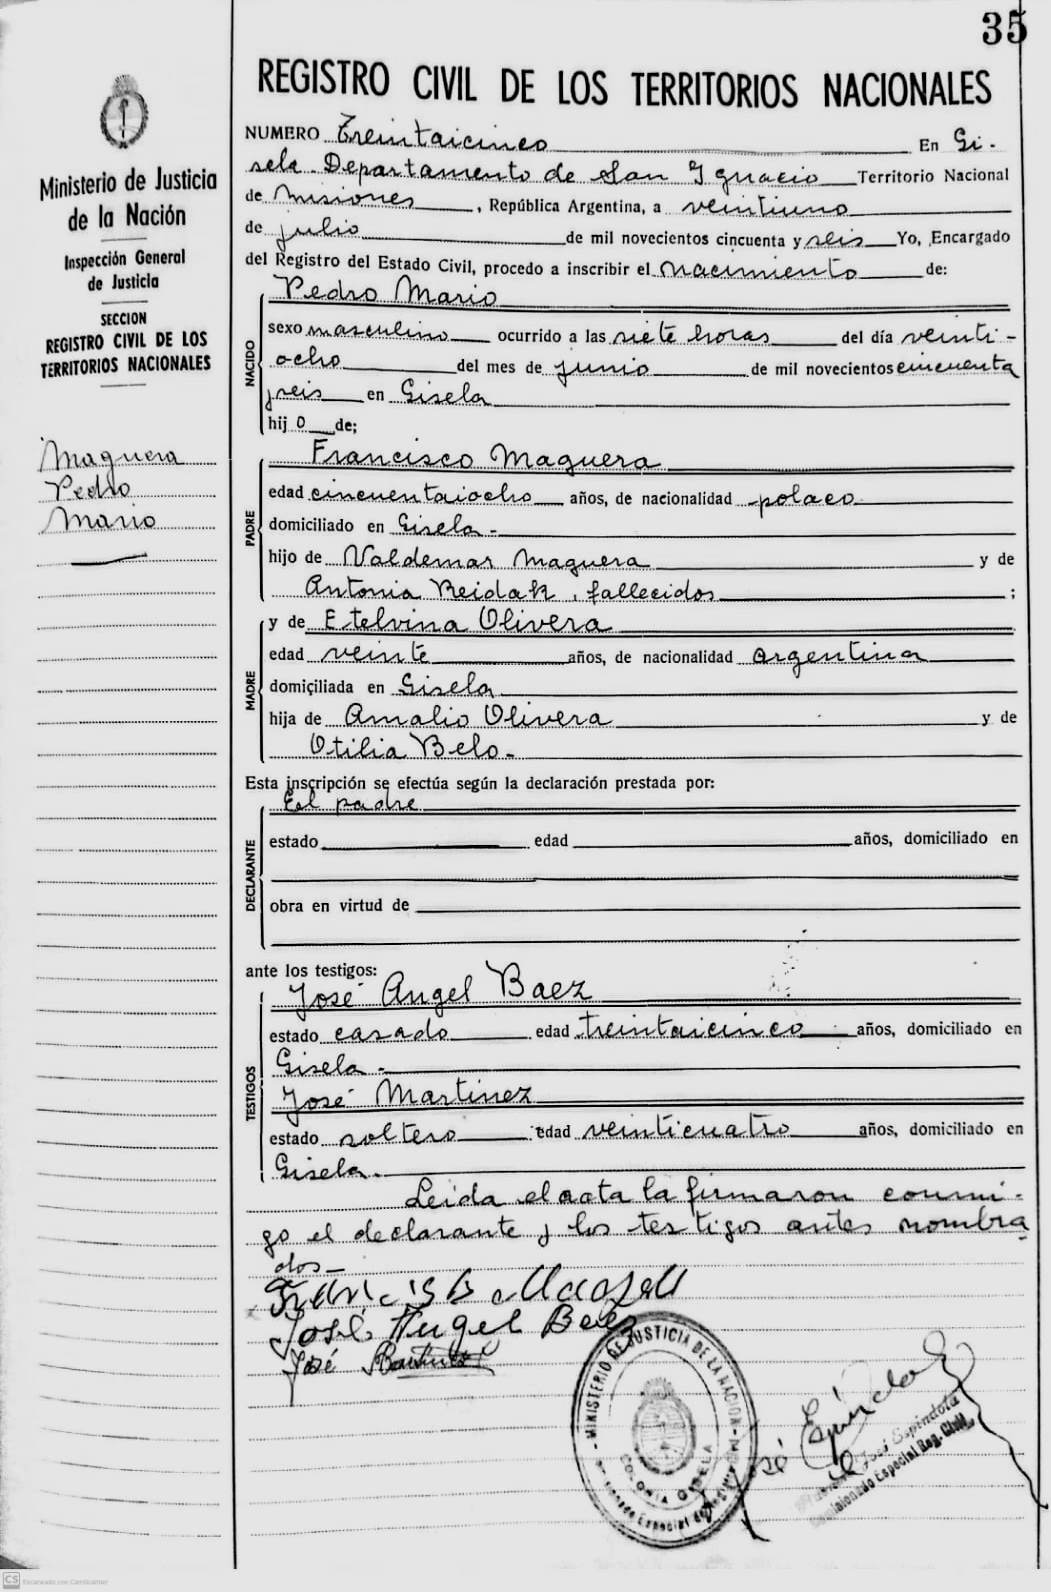 35
REGISTRO CIVIL DE LOS TERRITORIOS NACIONALES
Ministerio de Justicia
de la Nación
Inspección General
de Justicia
SECCION
REGISTRO CIVIL DE LOS
TERRITORIOS NACIONALES
Maguera
Pedro
Mario
NUMERO Treintaicinco En Gi-
sela. Departamento de San Ignacio Territorio Nacional
de Misiones, República Argentina, a veintiuno
de julio de mil novecientos cincuenta y seis Yo, Encargado
del Registro del Estado Civil, procedo a inscribir el nacimiento de:
NACIDO
Pedro Mario
sexo masculino ocurrido a las siete horas del día veinti-
ocho del mes de junio de mil novecientos cincuenta
y seis en Gisela
hij o de;
PADRE
Francisco Maguera
edad cincuentaiocho años, de nacionalidad polaco
domiciliado en Gisela-
hijo de Valdemar Maguera y de
Antonia Reidak, fallecidos;
MADRE
y de Etelvina Olivera
edad veinte años, de nacionalidad argentina
domiciliada en Gisela
hija de Amalio Olivera y de
Otilia Belo-
Esta inscripción se efectúa según la declaración prestada por:
DECLARANTE
El padre
estado edad años, domiciliado en
obra en virtud de
ante los testigos:
TESTIGOS
José Angel Baez
estado casado edad treintaicinco años, domiciliado en
Gisela-
José Martinez
estado soltero edad veinticuatro años, domiciliado en
Gisela-
Leida el acta la firmaron conmi-
go el declarante y los testigos antes nombra
dos-
José Angel Baez
José
MINISTERIO DE JUSTICIA DE LA NACION
COLONIA GISELA
José Espindola
José Espindola
Comisionado Especial Reg. Civil
CS Escaneado con CamScanner